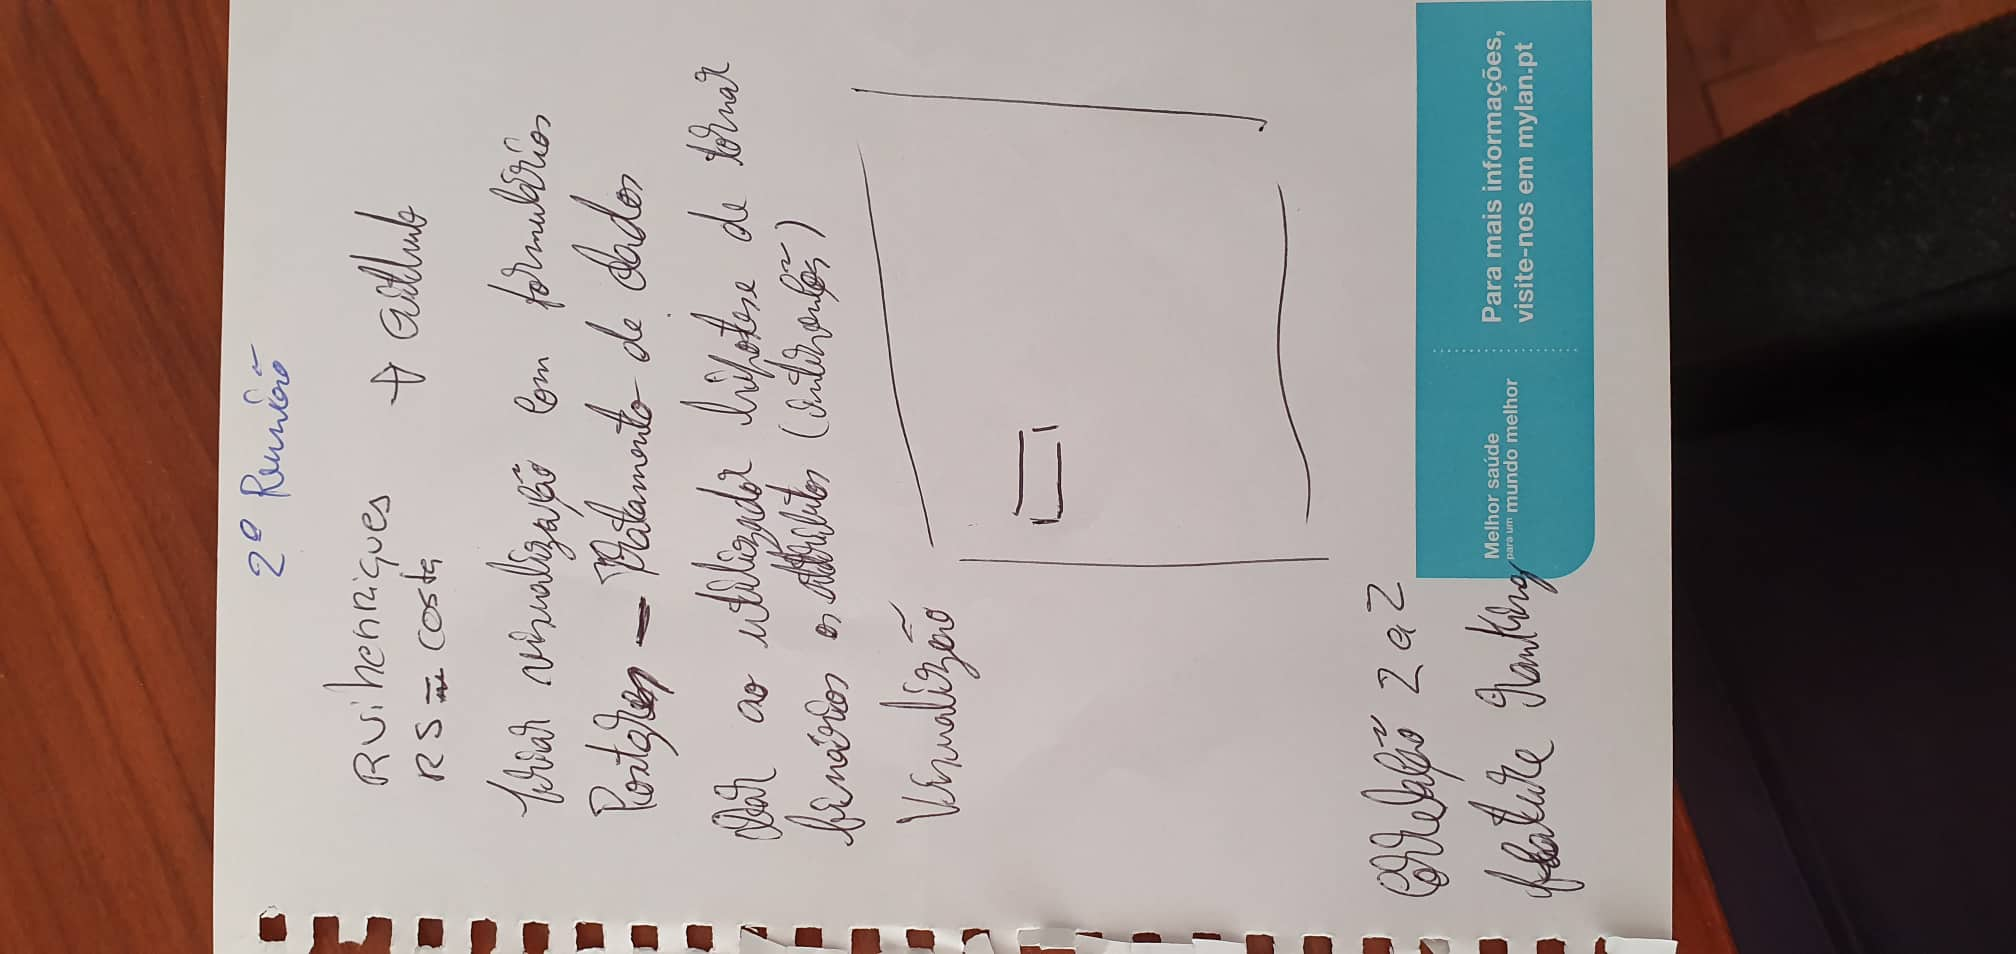 2ª Reunião
Ruihenriques → Github
RS = costa
visualização com formulários
Postgres - Tratamento de dados
Dar ao utilizador hipótese de tornar
binários os atributos (intervenções)
Visualização
Correlação 2 a 2
feature ranking
Melhor saúde
para um mundo melhor
Para mais informações,
visite-nos em mylan.pt